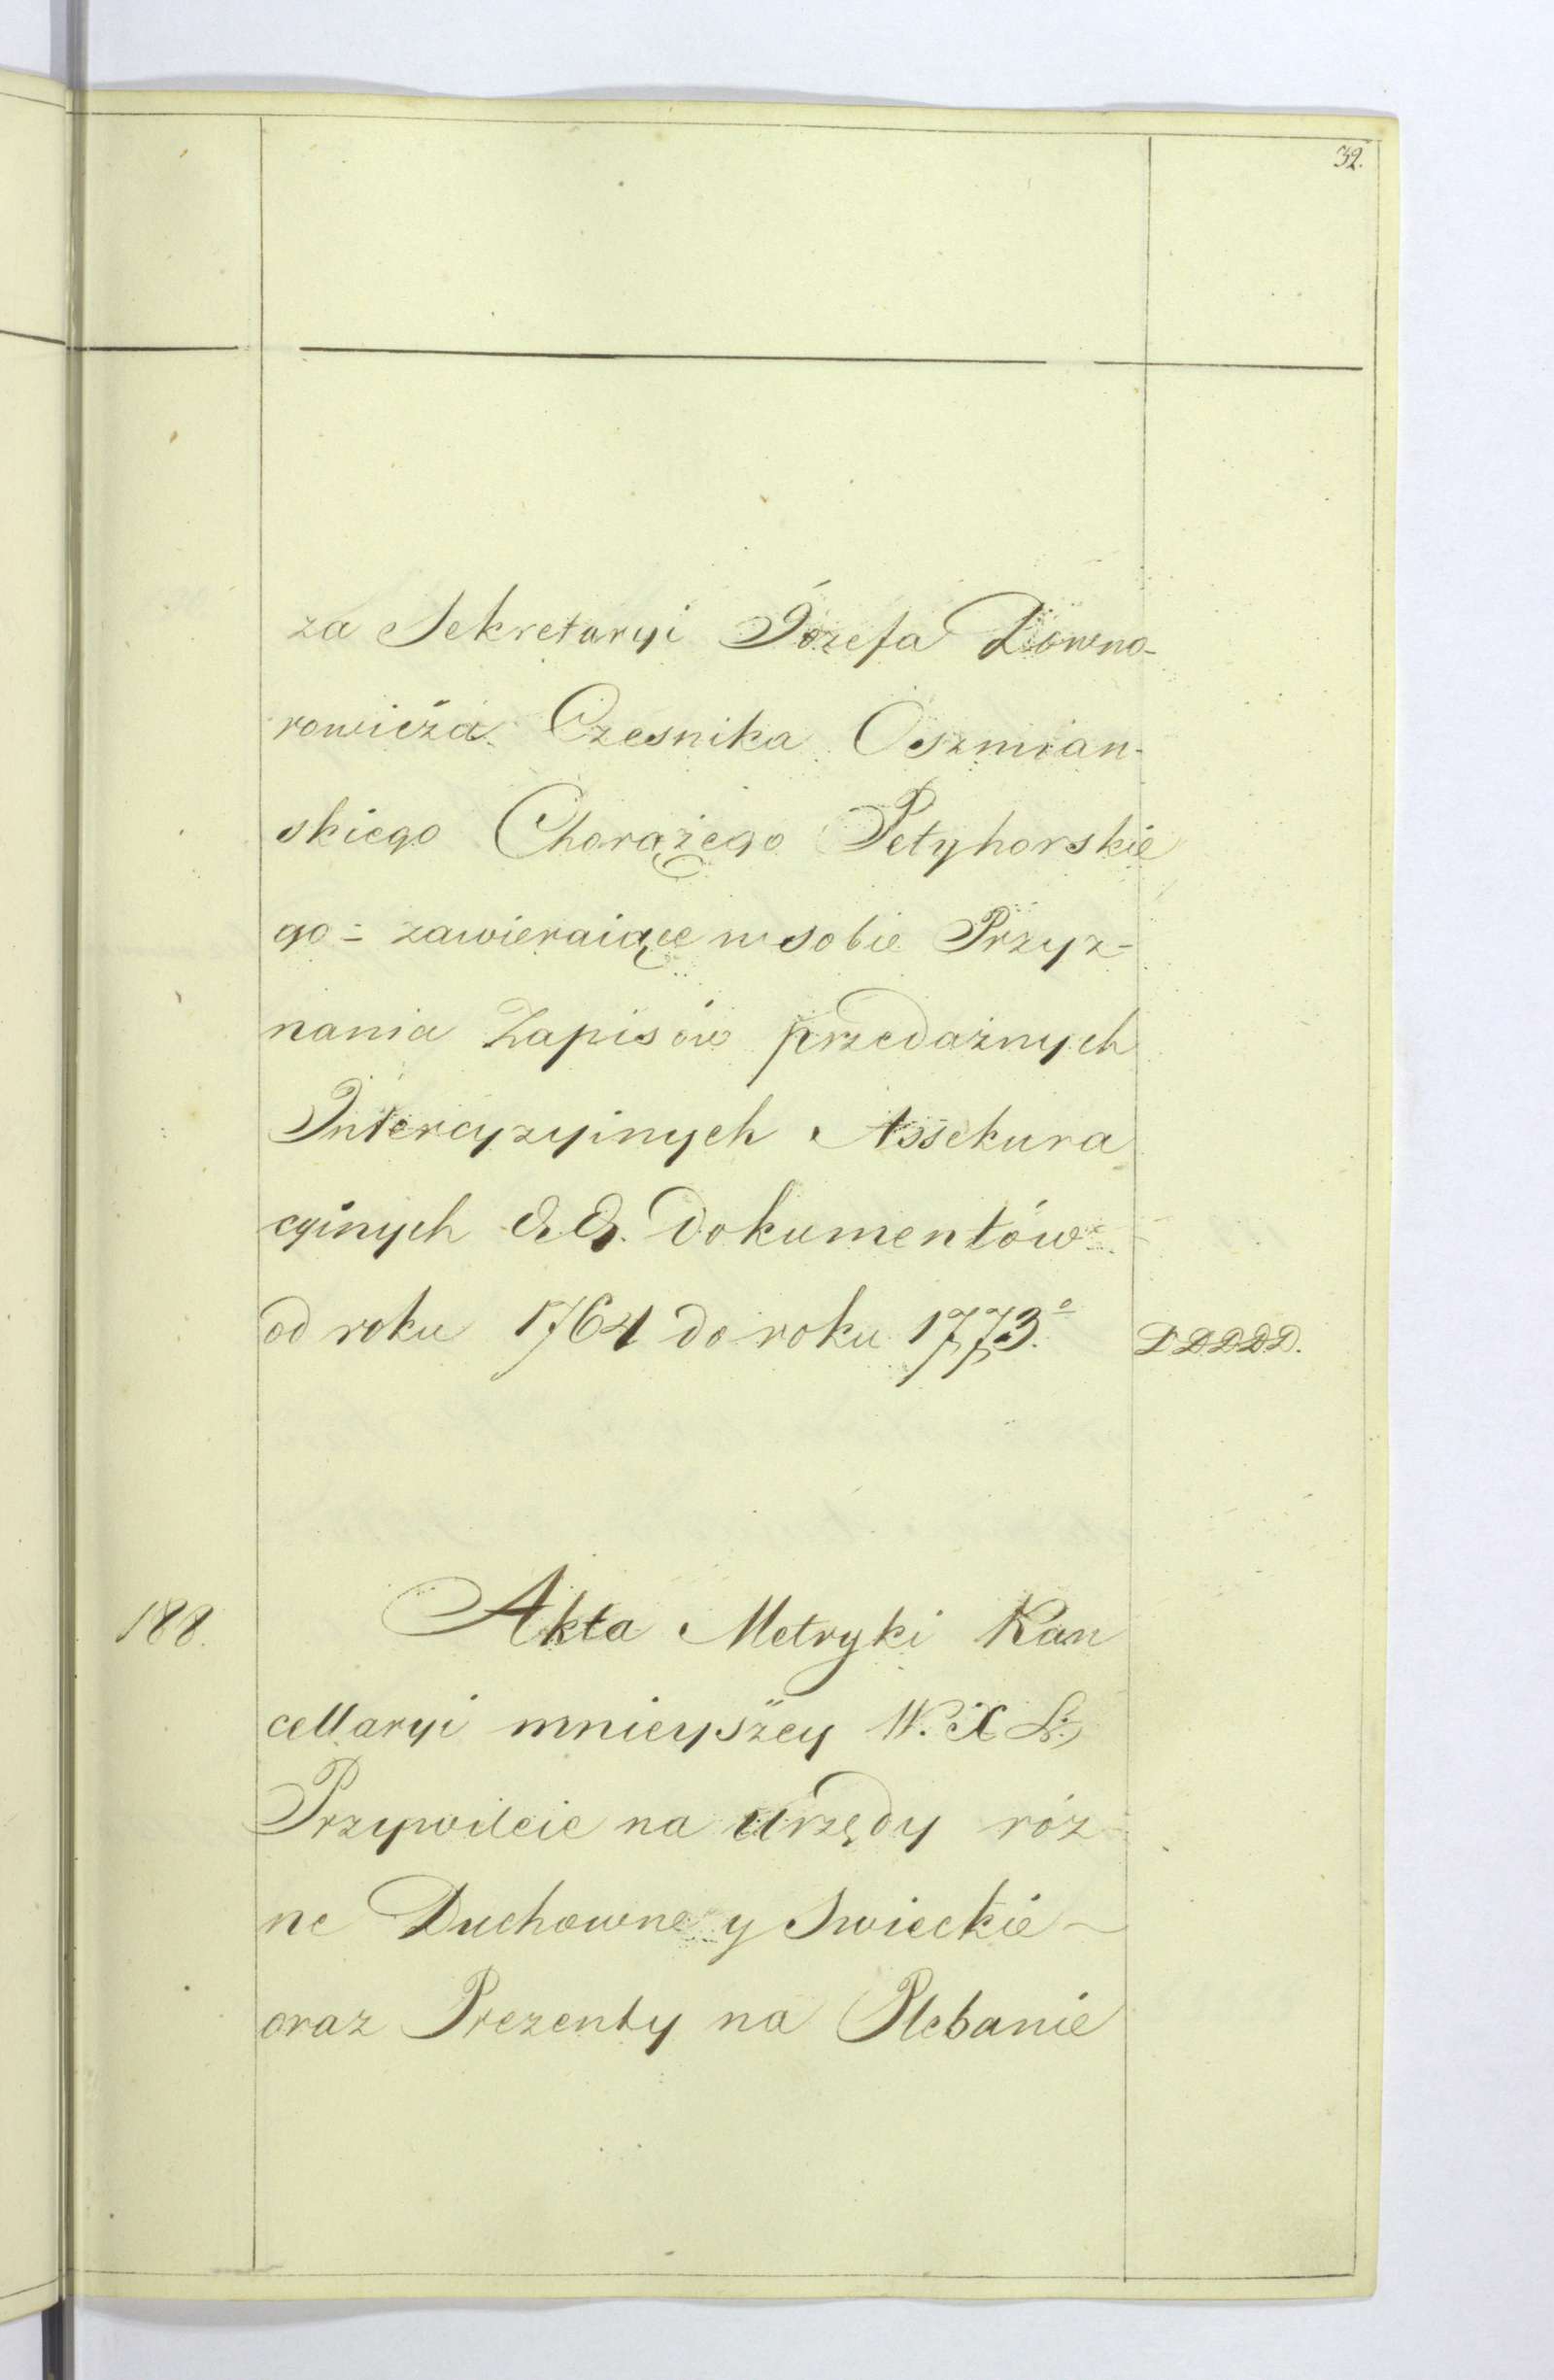 32.
za Sekretaryi Józefa Downo-
rowicza Czesnika Oszmian-
skiego Chorążego Petyhorskie
go = zawieraiące w sobie Przyz-
nania Zapisów przedażnych
Intercyzyinych Assekura
cyinych & &. Dokumentów
od roku 1764 do roku 1773.º
DDDDD.
188.
Akta Metryki Kan
cellaryi mnieyszey W. X L.,
Przywileie na Urzędy róż-
ne Duchowne y Swieckie
oraz Prezenty na Plebanie